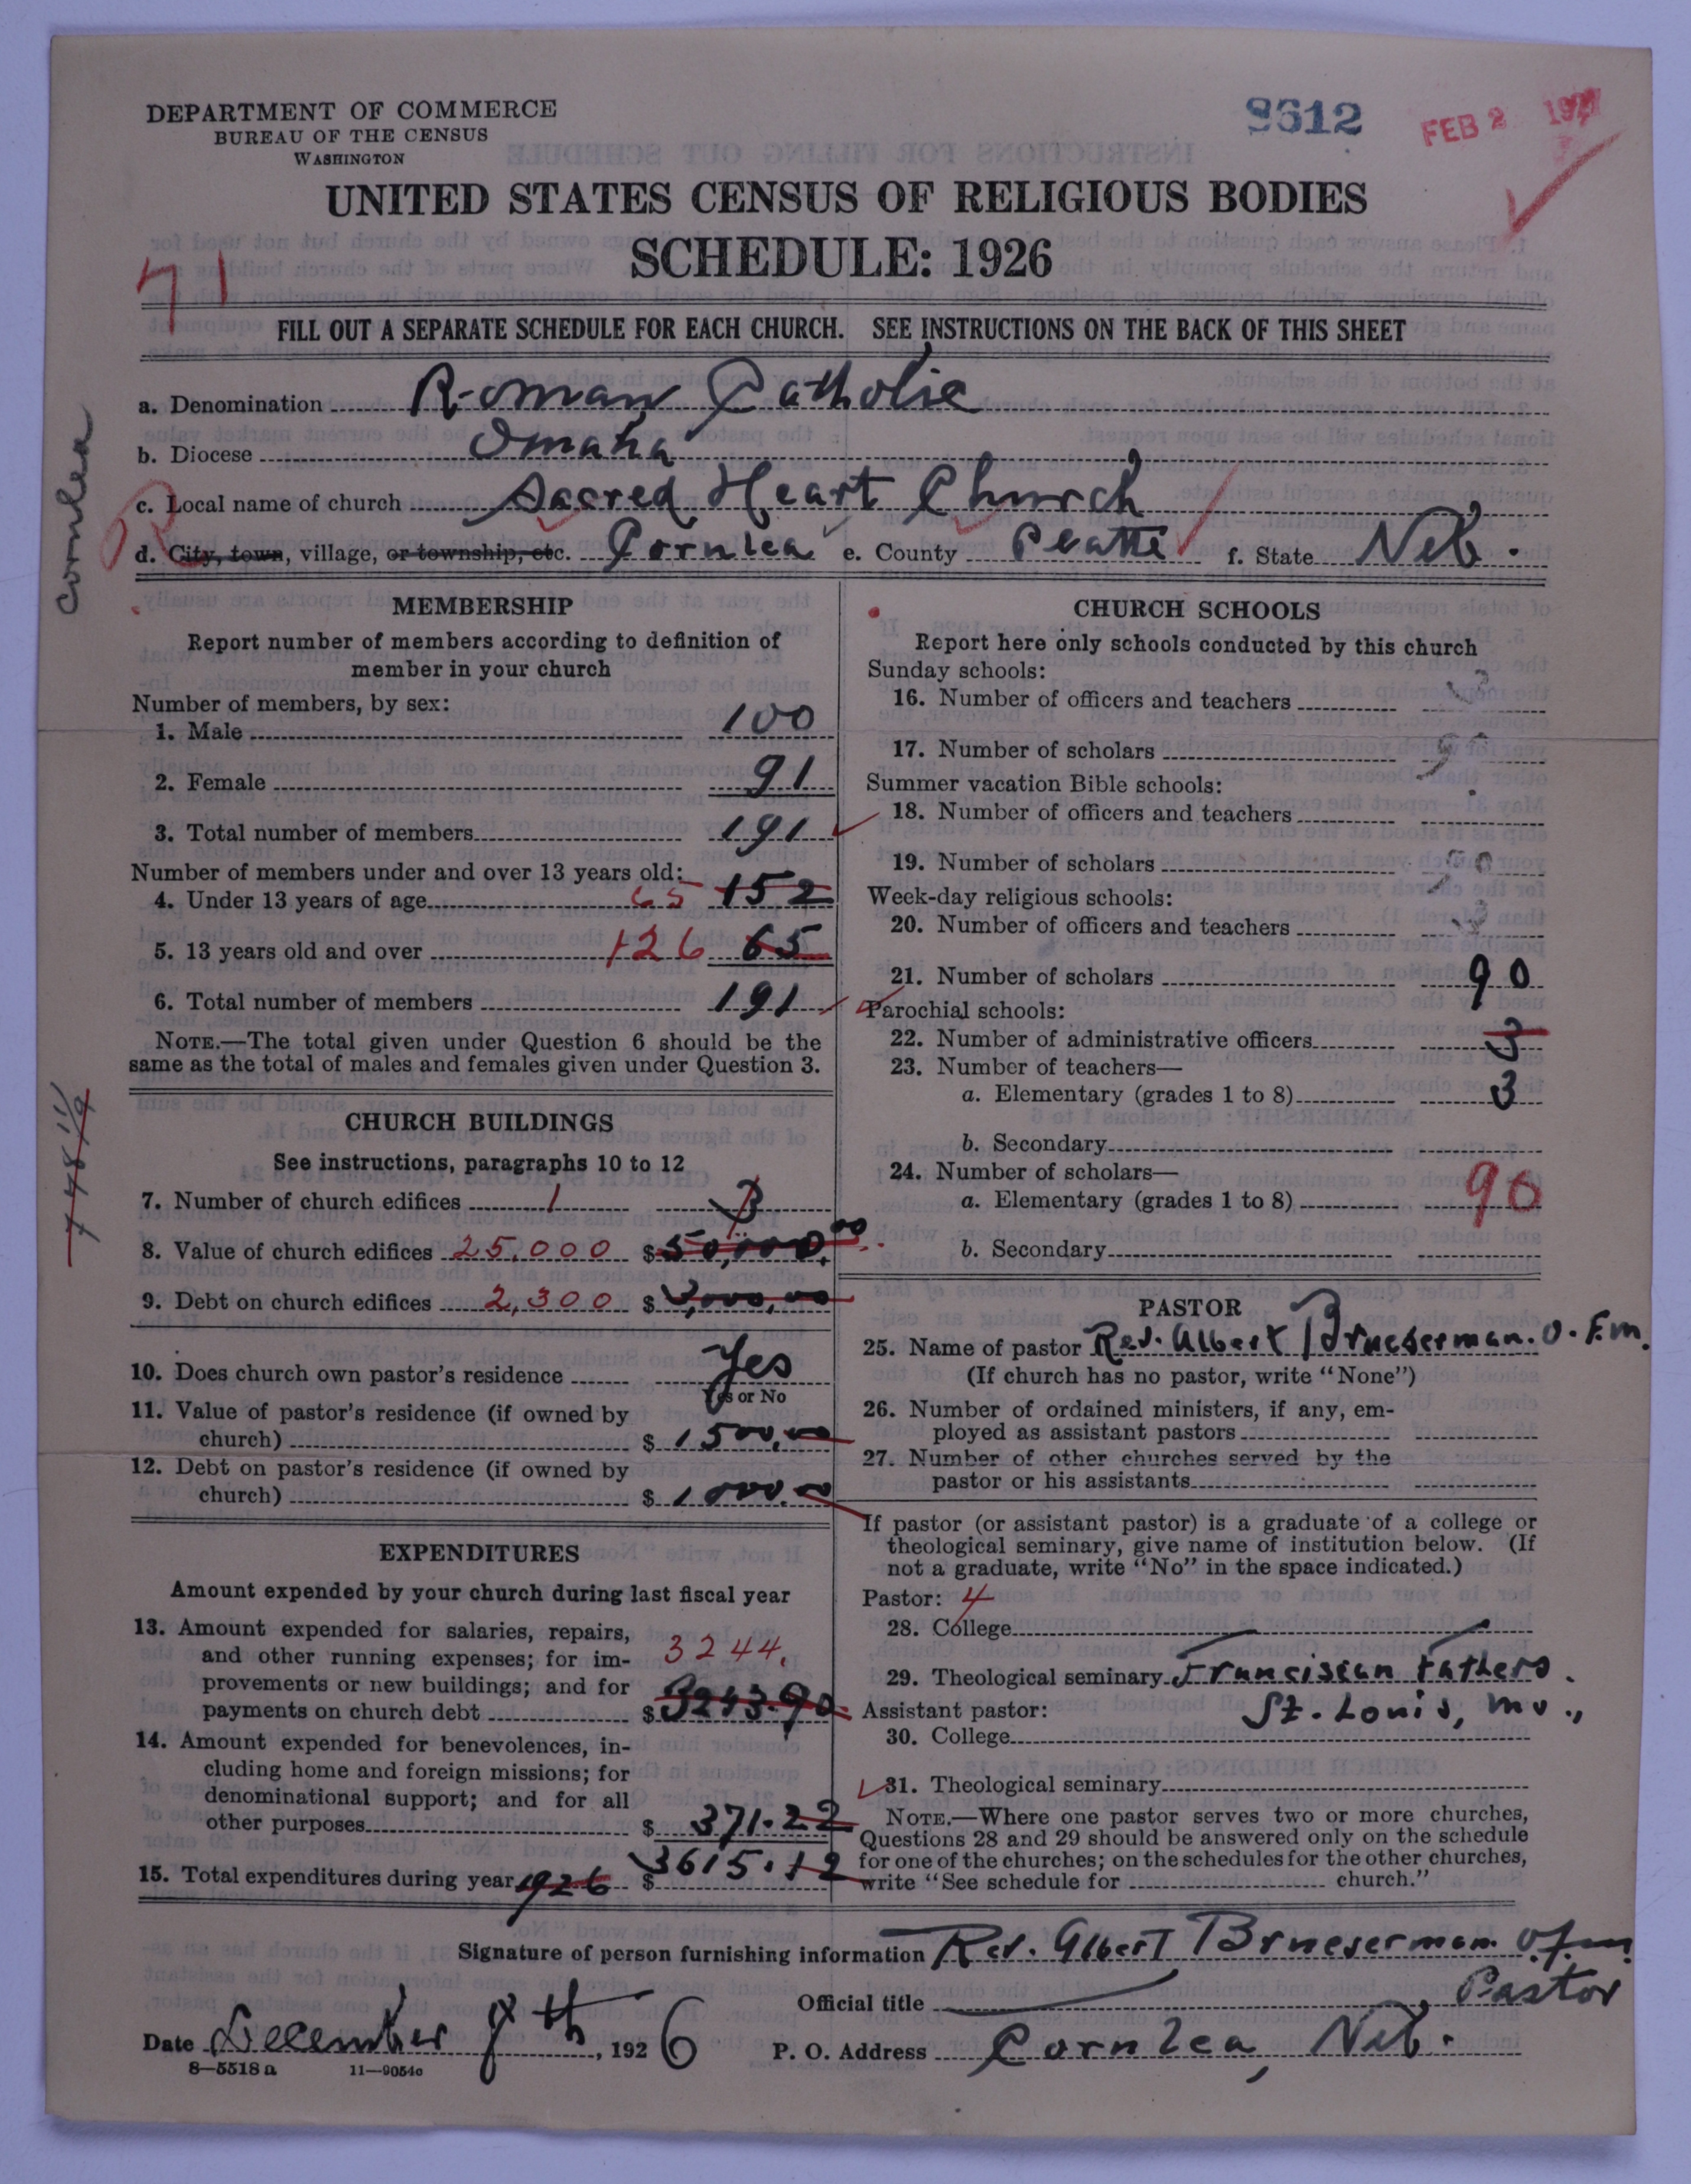 DEPARTMENT OF COMMERCE
BUREAU OF THE CENSUS
WASHINGTON
8612
FEB 2 1927
UNITED STATES CENSUS OF RELIGIOUS BODIES
SCHEDULE: 1926
71
FILL OUT A SEPARATE SCHEDULE FOR EACH CHURCH. SEE INSTRUCTIONS ON THE BACK OF THIS SHEET
a. Denomination Roman Catholic
b. Diocese Omaha
c. Local name of church Sacred Heart Church
d. City, town, village, or township, etc. Cornlea e. County Platte f. State Neb.
Cornlea
MEMBERSHIP
Report number of members according to definition of
member in your church
Number of members, by sex:
1. Male 100
2. Female 91
3. Total number of members 191
Number of members under and over 13 years old:
4. Under 13 years of age 65 152
5. 13 years old and over 126 65
6. Total number of members 191
NOTE.—The total given under Question 6 should be the
same as the total of males and females given under Question 3.
CHURCH BUILDINGS
See instructions, paragraphs 10 to 12
7. Number of church edifices 1 3
8. Value of church edifices 25,000 $ 50,000.00
9. Debt on church edifices 2,300 $ 3,000.00
10. Does church own pastor's residence Yes
Yes or No
11. Value of pastor's residence (if owned by
church) $ 1500.00
12. Debt on pastor's residence (if owned by
church) $ 1000.00
EXPENDITURES
Amount expended by your church during last fiscal year
13. Amount expended for salaries, repairs,
and other running expenses; for im-
provements or new buildings; and for
payments on church debt 3244. $ 3243.90
14. Amount expended for benevolences, in-
cluding home and foreign missions; for
denominational support; and for all
other purposes $ 371.22
15. Total expenditures during year 1926 $ 3615.12
CHURCH SCHOOLS
Report here only schools conducted by this church
Sunday schools:
16. Number of officers and teachers
17. Number of scholars
Summer vacation Bible schools:
18. Number of officers and teachers
19. Number of scholars
Week-day religious schools:
20. Number of officers and teachers
21. Number of scholars 90
Parochial schools:
22. Number of administrative officers 3
23. Number of teachers—
a. Elementary (grades 1 to 8) 3
b. Secondary
24. Number of scholars—
a. Elementary (grades 1 to 8) 90
b. Secondary
PASTOR
25. Name of pastor Rev. Albert Brueserman. O.F.M.
(If church has no pastor, write "None")
26. Number of ordained ministers, if any, em-
ployed as assistant pastors
27. Number of other churches served by the
pastor or his assistants
If pastor (or assistant pastor) is a graduate of a college or
theological seminary, give name of institution below. (If
not a graduate, write "No" in the space indicated.)
Pastor: 4
28. College
29. Theological seminary Franciscan Fathers.
St. Louis, Mo.,
Assistant pastor:
30. College
31. Theological seminary
NOTE.—Where one pastor serves two or more churches,
Questions 28 and 29 should be answered only on the schedule
for one of the churches; on the schedules for the other churches,
write "See schedule for church."
Signature of person furnishing information Rev. Albert Brueserman O.F.M.
Official title Pastor
Date December 8th, 1926 P. O. Address Cornlea, Neb.
8-5518 a 11-9054c